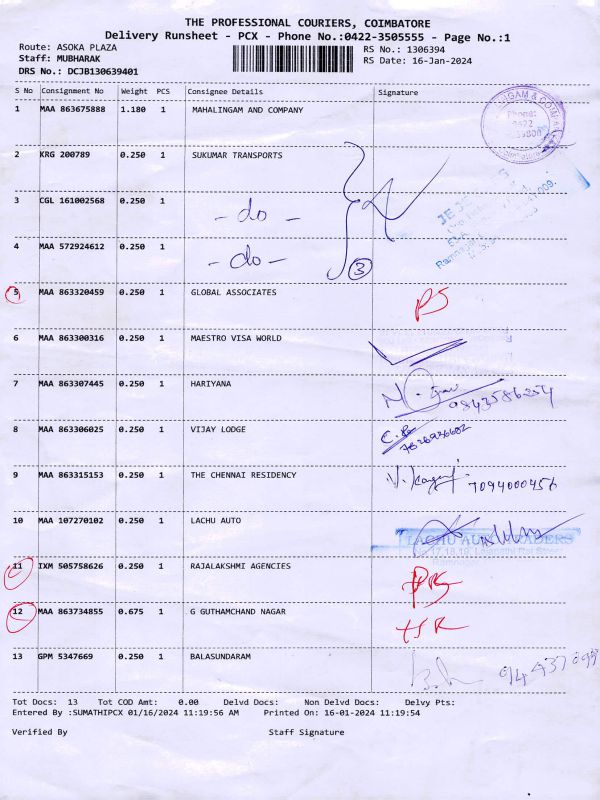 THE PROFESSIONAL COURIERS, COIMBATORE
Delivery Runsheet - PCX - Phone No.:0422-3505555 - Page No.:1
Route: ASOKA PLAZA
RS No.: 1306394
Staff: MUBHARAK
RS Date: 16-Jan-2024
DRS No.: DCJB130639401
S No Consignment No Weight PCS Consignee Details Signature
1 MAA 863675888 1.180 1 MAHALINGAM AND COMPANY
Phone:
2 KRG 200789 0.250 1 SUKUMAR TRANSPORTS
3 CGL 161002568 0.250 1 - do -
4 MAA 572924612 0.250 1 - do -
3
5 MAA 863320459 0.250 1 GLOBAL ASSOCIATES PS
6 MAA 863300316 0.250 1 MAESTRO VISA WORLD
7 MAA 863307445 0.250 1 HARIYANA
9843586254
8 MAA 863306025 0.250 1 VIJAY LODGE
9 MAA 863315153 0.250 1 THE CHENNAI RESIDENCY 7094000456
10 MAA 107270102 0.250 1 LACHU AUTO
LACHU AUTO TRADERS
11 IXM 505758626 0.250 1 RAJALAKSHMI AGENCIES
12 MAA 863734855 0.675 1 G GUTHAMCHAND NAGAR
13 GPM 5347669 0.250 1 BALASUNDARAM
Tot Docs: 13 Tot COD Amt: 0.00 Delvd Docs: Non Delvd Docs: Delvy Pts:
Entered By :SUMATHIPCX 01/16/2024 11:19:56 AM Printed On: 16-01-2024 11:19:54
Verified By Staff Signature